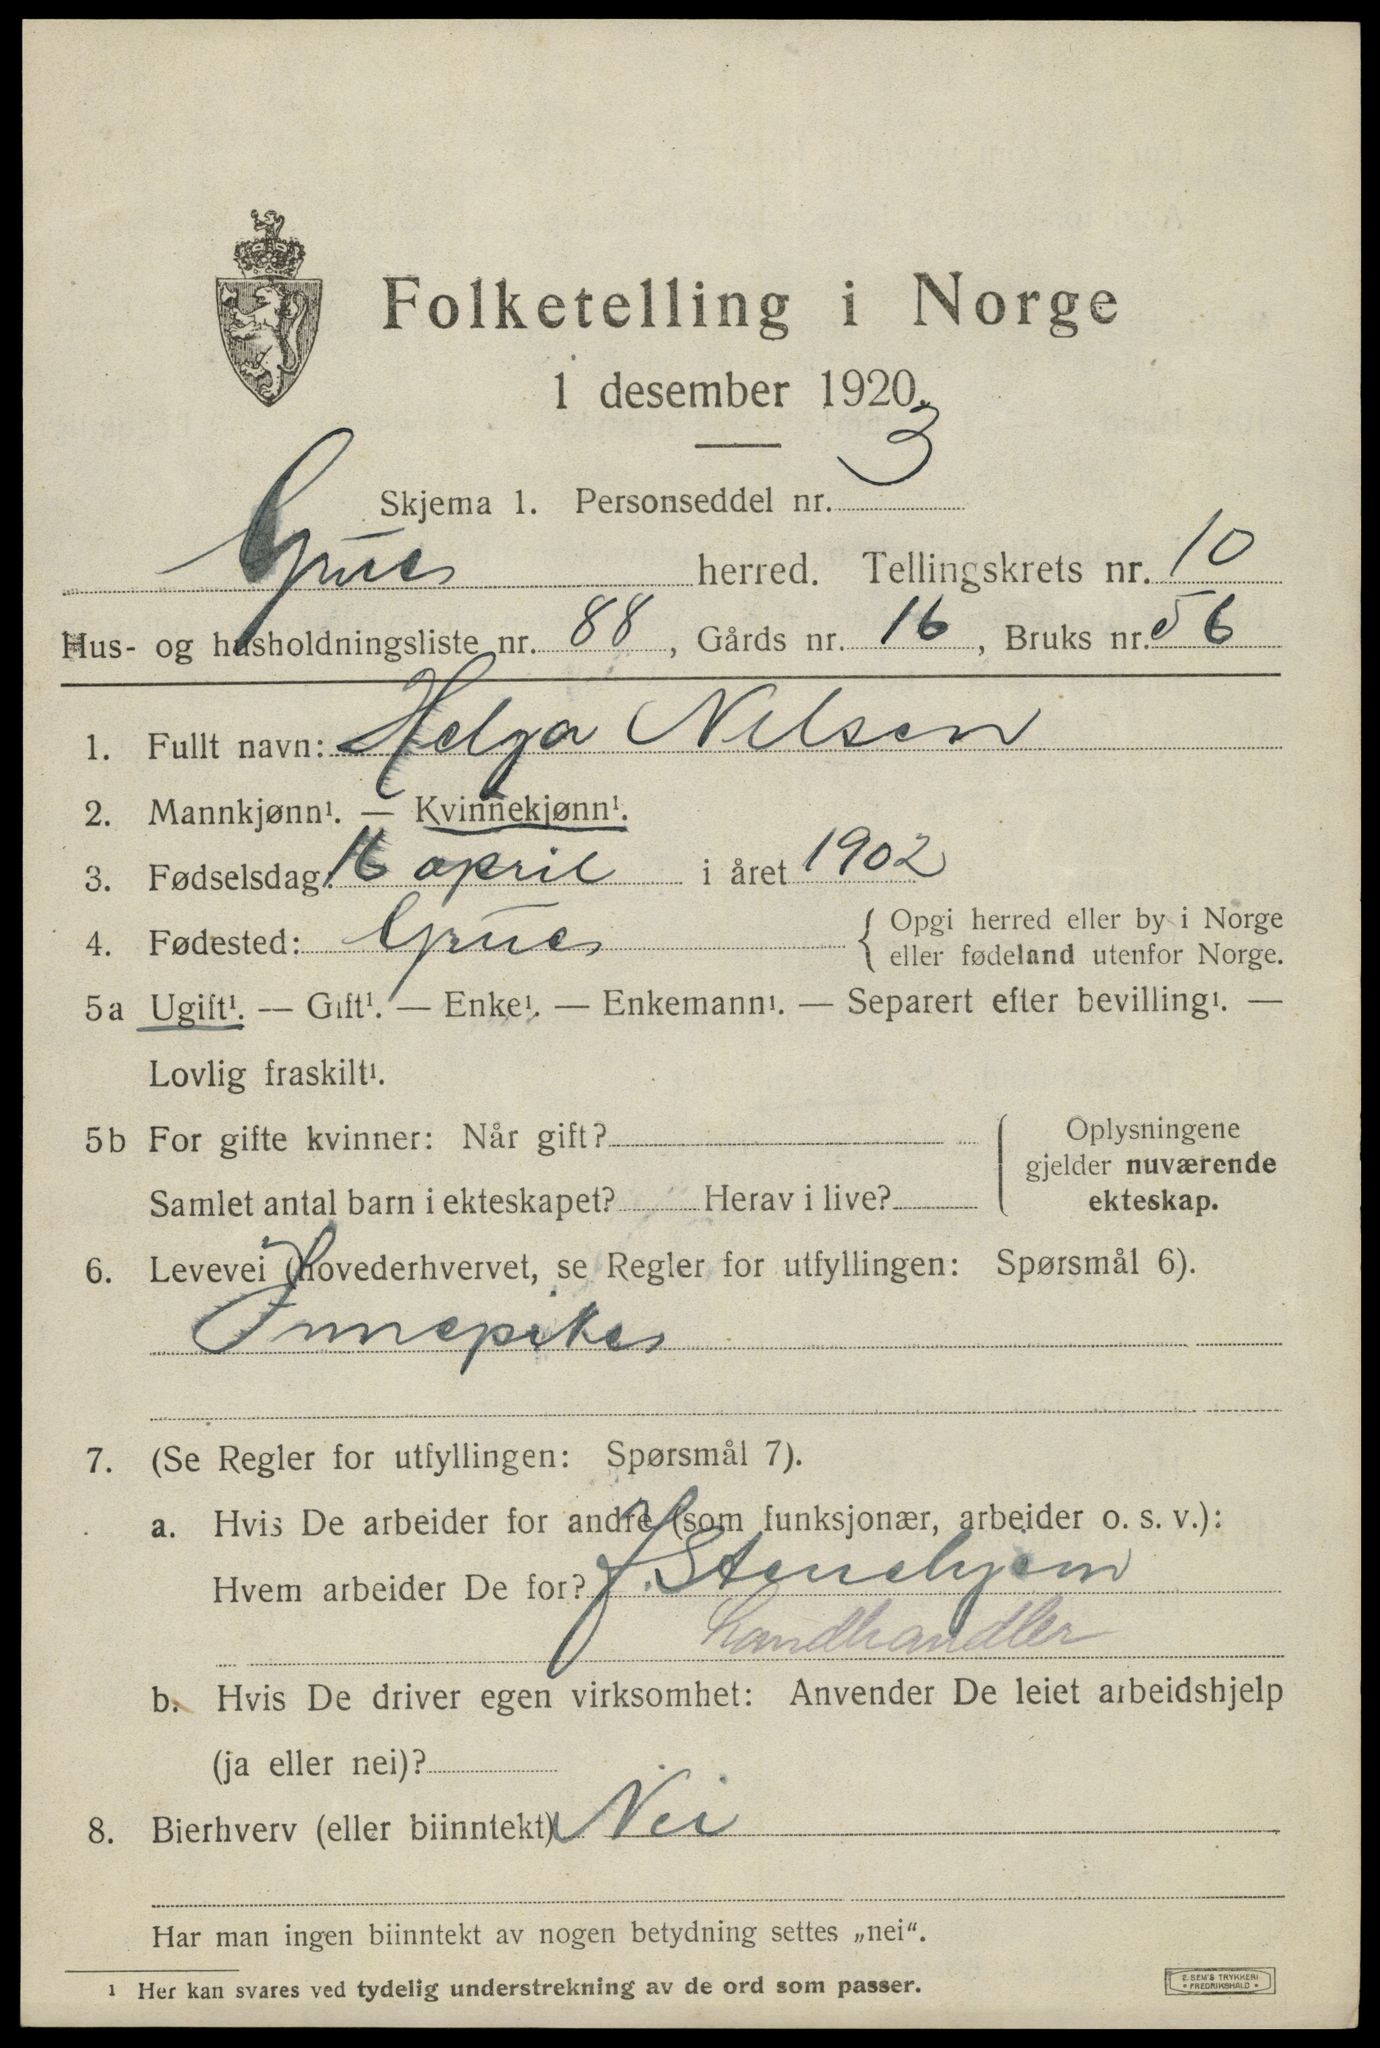 Folketelling i Norge
1 desember 1920.
Skjema 1. Personseddel nr. 3
Grue herred. Tellingskrets nr. 10
Hus- og husholdningsliste nr. 88, Gårds nr. 16, Bruks nr. 56
1. Fullt navn: Helga Nilsen
2. Mannkjønn¹. — Kvinnekjønn¹.
3. Fødselsdag: 16 april i året 1902
4. Fødested: Grue { Opgi herred eller by i Norge
eller fødeland utenfor Norge.
5a Ugift¹. — Gift¹. — Enke¹. — Enkemann¹. — Separert efter bevilling¹. —
Lovlig fraskilt¹.
5b For gifte kvinner: Når gift? Oplysningene
gjelder nuværende
Samlet antal barn i ekteskapet? Herav i live? ekteskap.
6. Levevei (hovederhvervet, se Regler for utfyllingen: Spørsmål 6).
Innepike
7. (Se Regler for utfyllingen: Spørsmål 7).
a. Hvis De arbeider for andre (som funksjonær, arbeider o. s. v.):
Hvem arbeider De for? J. Stenehjem
Landhandler
b. Hvis De driver egen virksomhet: Anvender De leiet arbeidshjelp
(ja eller nei)?
8. Bierhverv (eller biinntekt) Nei
Har man ingen biinntekt av nogen betydning settes „nei“.
¹ Her kan svares ved tydelig understrekning av de ord som passer.
E. SEM'S TRYKKERI
• FREDRIKSHALD •